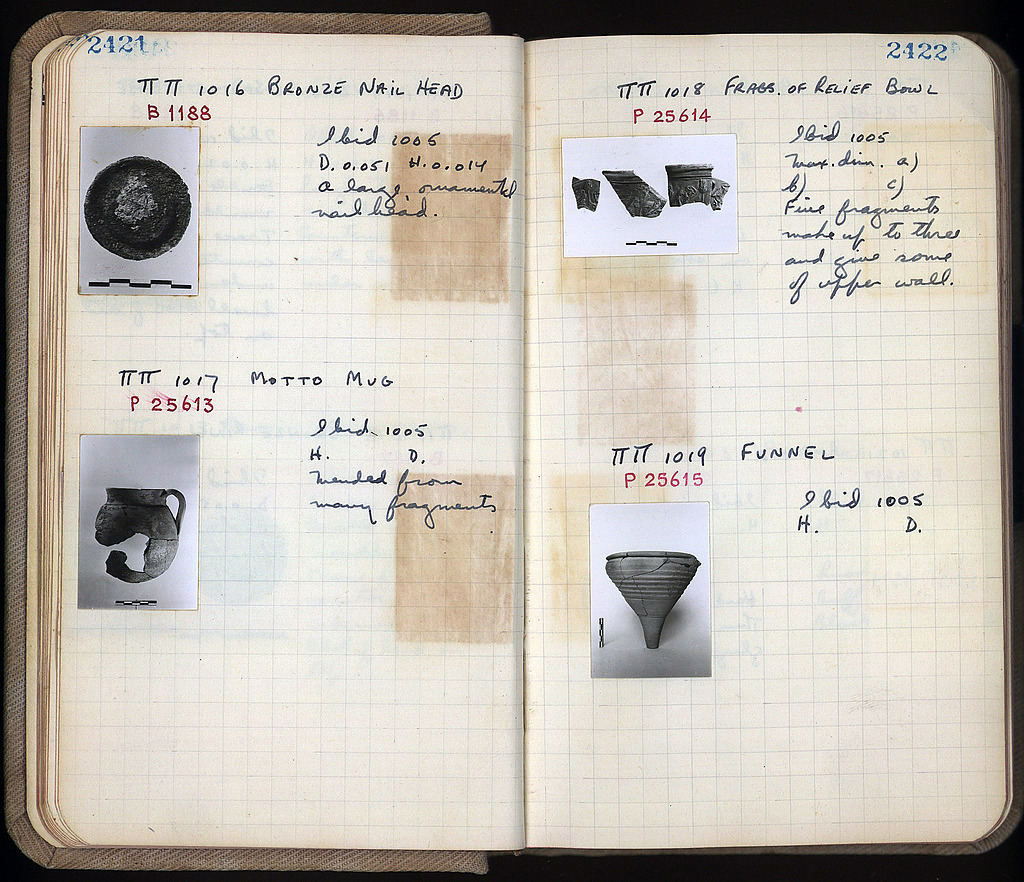 2421
ΠΠ 1016 BRONZE NAIL HEAD
B 1188
Ibid 1005
D. 0.051 H. 0.014
a large ornamental
nail head.
ΠΠ 1017 MOTTO MUG
P 25613
Ibid 1005
H. D.
Mended from
many fragments
2422
ΠΠ 1018 FRAGS. OF RELIEF BOWL
P 25614
Ibid 1005
Max. dim. a)
b) c)
Five fragments
make up to three
and give some
of upper wall.
ΠΠ 1019 FUNNEL
P 25615
Ibid 1005
H. D.